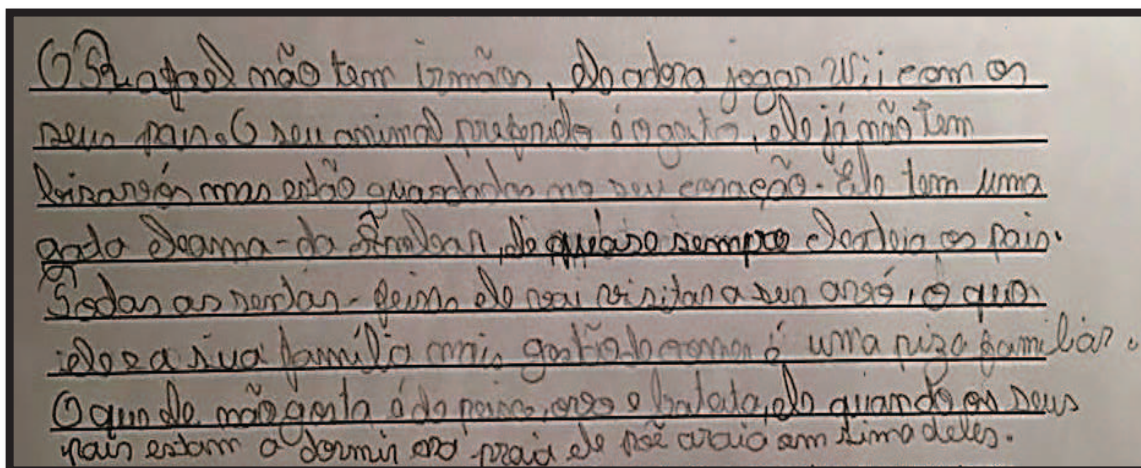 O Rafael não tem irmãos, ele adora jogar Wii com os
seus pais. O seu animal preferido é o gato, ele já não tem
bizavós mas estão guardados no seu coração. Ele tem uma
gata chama-da, ele quase sempre chateia os pais.
Todas as sestas-feiras ele vai visitar a sua avó, o que
ele e a sua família mais gostão de comer é uma piza familiar.
O que ele não gosta é de peixe, ovo e batata, ele quando os seus
pais estam a dormir na praia ele põe araia em sima deles.